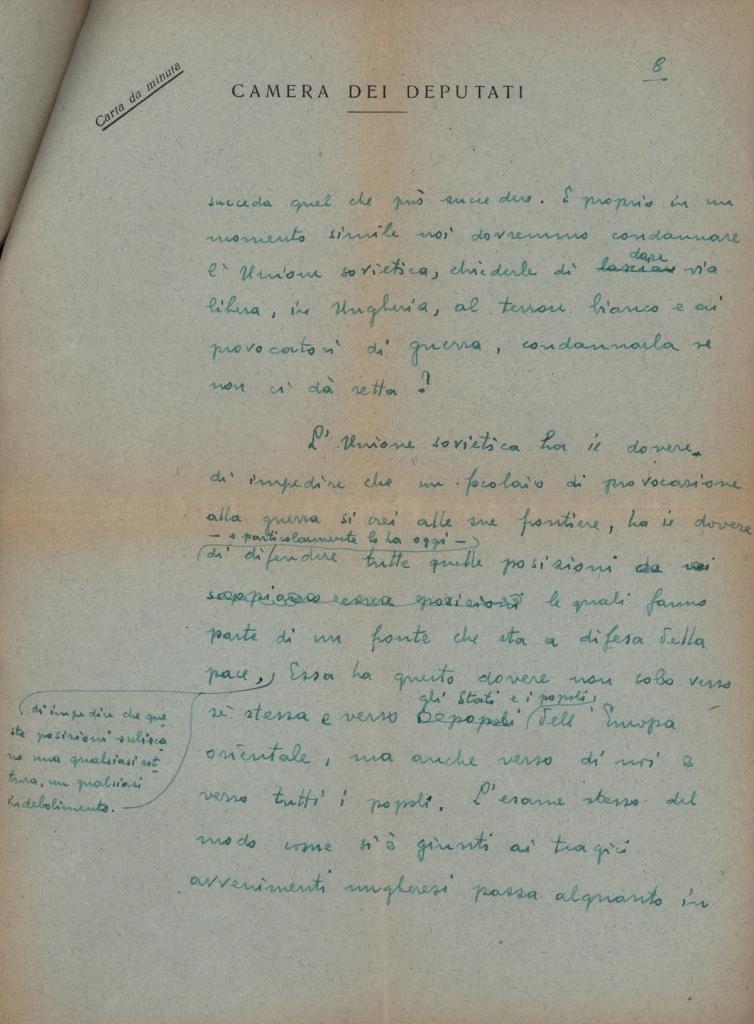 Carta da minuta
8
CAMERA DEI DEPUTATI
succeda quel che può succedere. E proprio in un
momento simile noi dovremmo condannare
l'Unione sovietica, chiederle di lasciare dare via
libera, in Ungheria, al terrore bianco e ai
provocatori di guerra, condannarla se
non ci dà retta?
L'Unione sovietica ha il dovere
di impedire che un focolaio di provocazione
alla guerra si crei alle sue frontiere, ha il dovere
– e particolarmente lo ha oggi –
di difendere tutte quelle posizioni da noi
sappiamo essere posizioni le quali fanno
parte di un fronte che sta a difesa della
pace, Essa ha questo dovere non solo verso
gli Stati e i popoli
sè stessa e verso popoli dell'Europa
orientale, ma anche verso di noi e
verso tutti i popoli. L'esame stesso del
modo come si è giunti ai tragici
avvenimenti ungheresi passa alquanto in
di impedire che que
ste posizioni subisca
no una qualsiasi rot
tura, un qualsiasi
indebolimento.